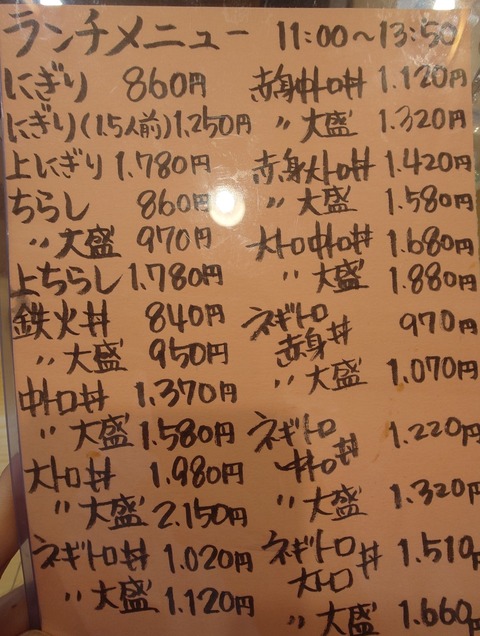 ランチメニュー 11:00〜13:50
にぎり 860円
にぎり(1.5人前)1,250円
上にぎり 1.780円
ちらし 860円
〃大盛 970円
上ちらし 1.780円
鉄火丼 840円
〃大盛 950円
中トロ丼 1.370円
〃大盛 1.580円
大トロ丼 1.980円
〃大盛 2.150円
ネギトロ丼 1.020円
〃大盛 1.120円
赤身中トロ丼 1.120円
〃大盛 1.320円
赤身大トロ丼 1.420円
〃大盛 1.580円
大トロ中トロ丼 1.680円
〃大盛 1.880円
ネギトロ
赤身丼 970円
〃大盛 1.070円
ネギトロ
中トロ丼 1.220円
〃大盛 1.320円
ネギトロ
大トロ丼 1.510円
〃大盛 1.660円